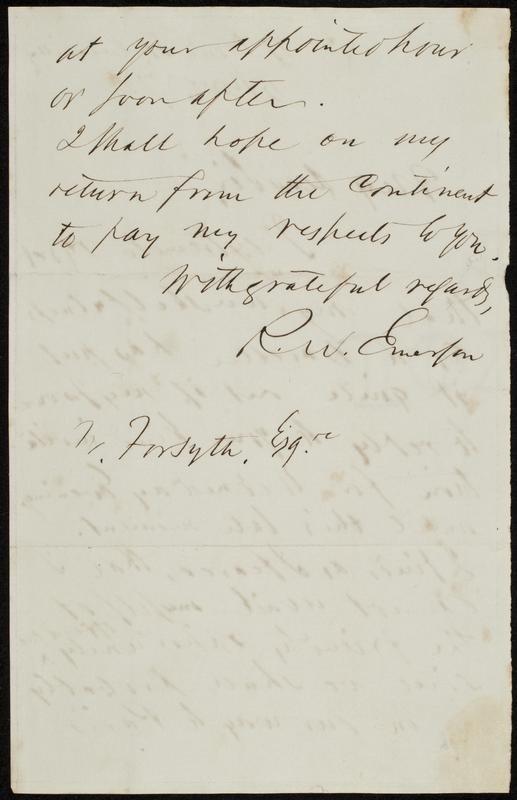 at your appointed hour
or soon after.
I shall hope on my
return from the Continent
to pay my respects to you.
With grateful regards,
R. W. Emerson
W. Forsyth, Esq.re